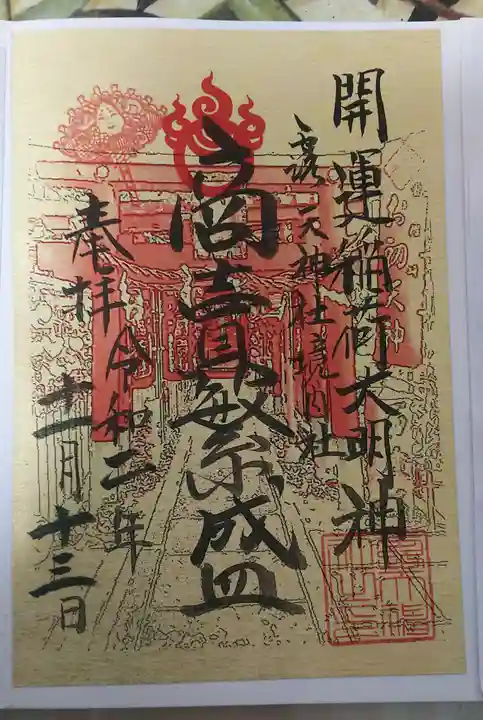 開運稲荷大明神
露天神社境内社
商賣繁盛
奉拝
令和二年
十一月十三日